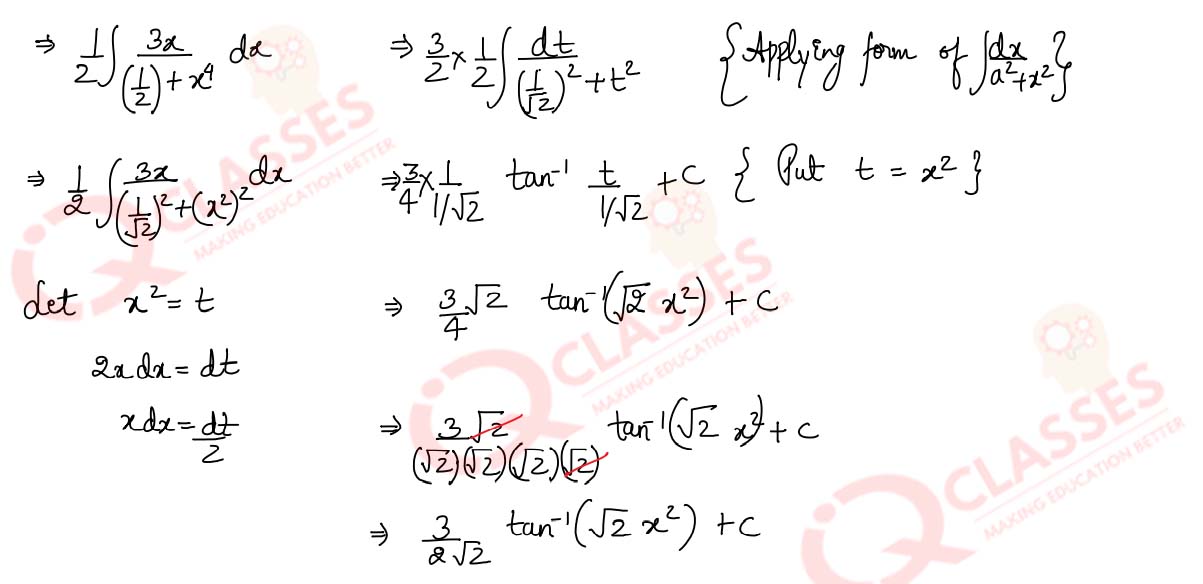 ⇒ 1/2 ∫ 3x/((1/2) + x⁴) dx
⇒ 1/2 ∫ 3x/((1/√2)² + (x²)²) dx
Let x² = t
2x dx = dt
x dx = dt/2
⇒ 3/2 × 1/2 ∫ dt/((1/√2)² + t²) {Applying form of ∫ dx/(a² + x²)}
⇒ 3/4 × 1/(1/√2) tan⁻¹ t/(1/√2) + C { Put t = x² }
⇒ 3/4 √2 tan⁻¹(√2 x²) + C
⇒ 3√2/((√2)(√2)(√2)(√2)) tan⁻¹(√2 x²) + C
⇒ 3/(2√2) tan⁻¹(√2 x²) + C
iQ CLASSES
MAKING EDUCATION BETTER
iQ CLASSES
MAKING EDUCATION BETTER
iQ CLASSES
MAKING EDUCATION BETTER